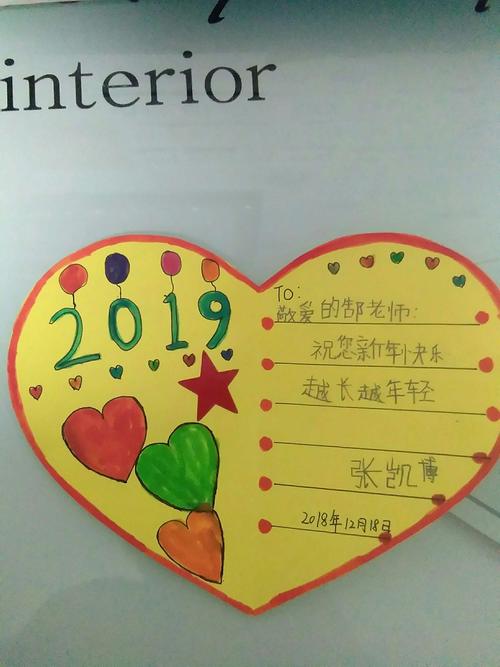 interior
2019
To:
敬爱的郜老师:
祝您新年快乐
越长越年轻
张凯博
2018年12月18日